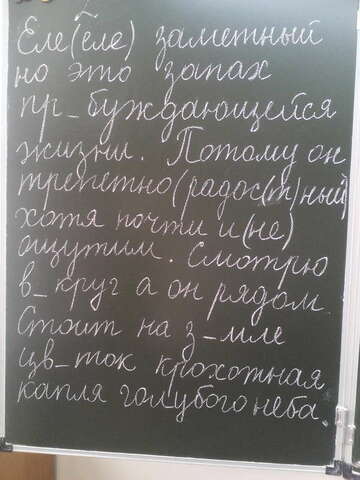 Еле(ёле) заметный
но это запах
пр_буждающейся
жизни. Потому он
трепетно(радос(т)ный)
хотя почти и(не)
ощутим. Смотрю
в_круг а он рядом.
Стоит на з_мле
цв_ток крохотная
капля голубого неба.